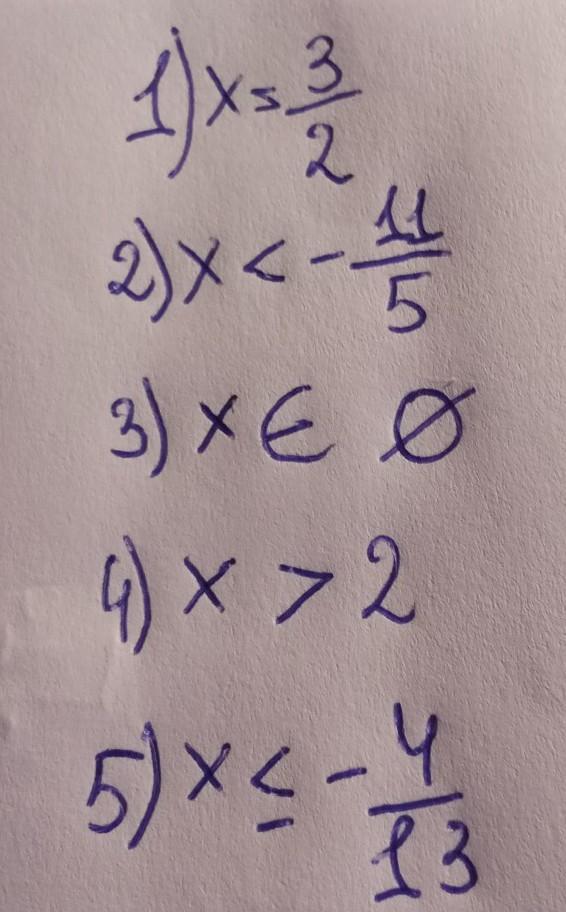 1) x = 3/2
2) x < - 11/5
3) x ∈ ∅
4) x > 2
5) x ≤ - 4/13